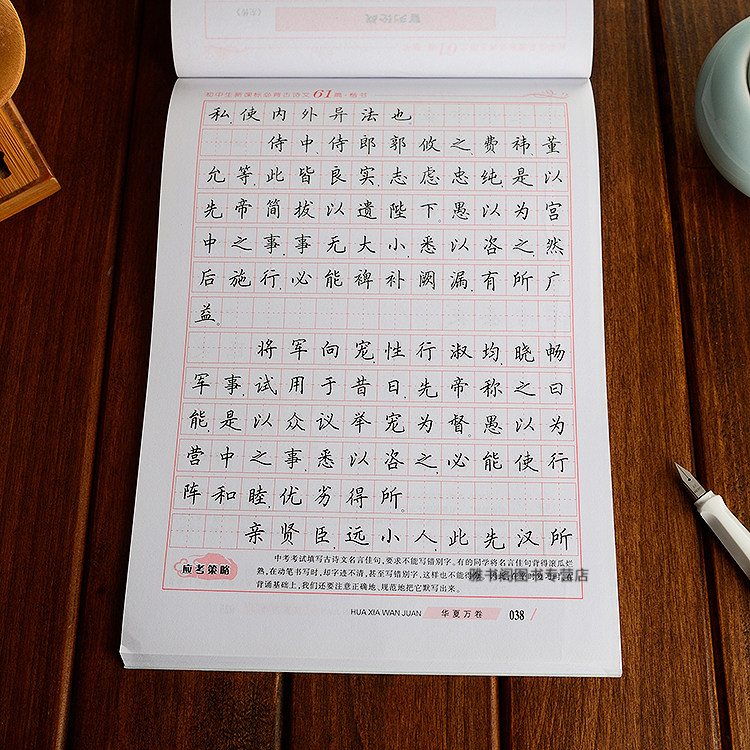 初中生新课标必背古诗文61篇·楷书
私,使内外异法也。
侍中、侍郎郭攸之、费祎、董
允等,此皆良实,志虑忠纯,是以
先帝简拔以遗陛下。愚以为宫
中之事,事无大小,悉以咨之,然
后施行,必能裨补阙漏,有所广
益。
将军向宠,性行淑均,晓畅
军事,试用于昔日,先帝称之曰
能,是以众议举宠为督。愚以为
营中之事,悉以咨之,必能使行
阵和睦,优劣得所。
亲贤臣,远小人,此先汉所
应考策略
中考考试填写古诗文名言佳句,要求不能写错别字。有的同学将名言佳句背得滚瓜烂
熟,在动笔书写时,却字迹不清,甚至写错别字,这样也不能得
背诵基础上,我们还要注意正确地、规范地把它默写出来。
书阁图书专营店
HUA XIA WAN JUAN
华夏万卷
038